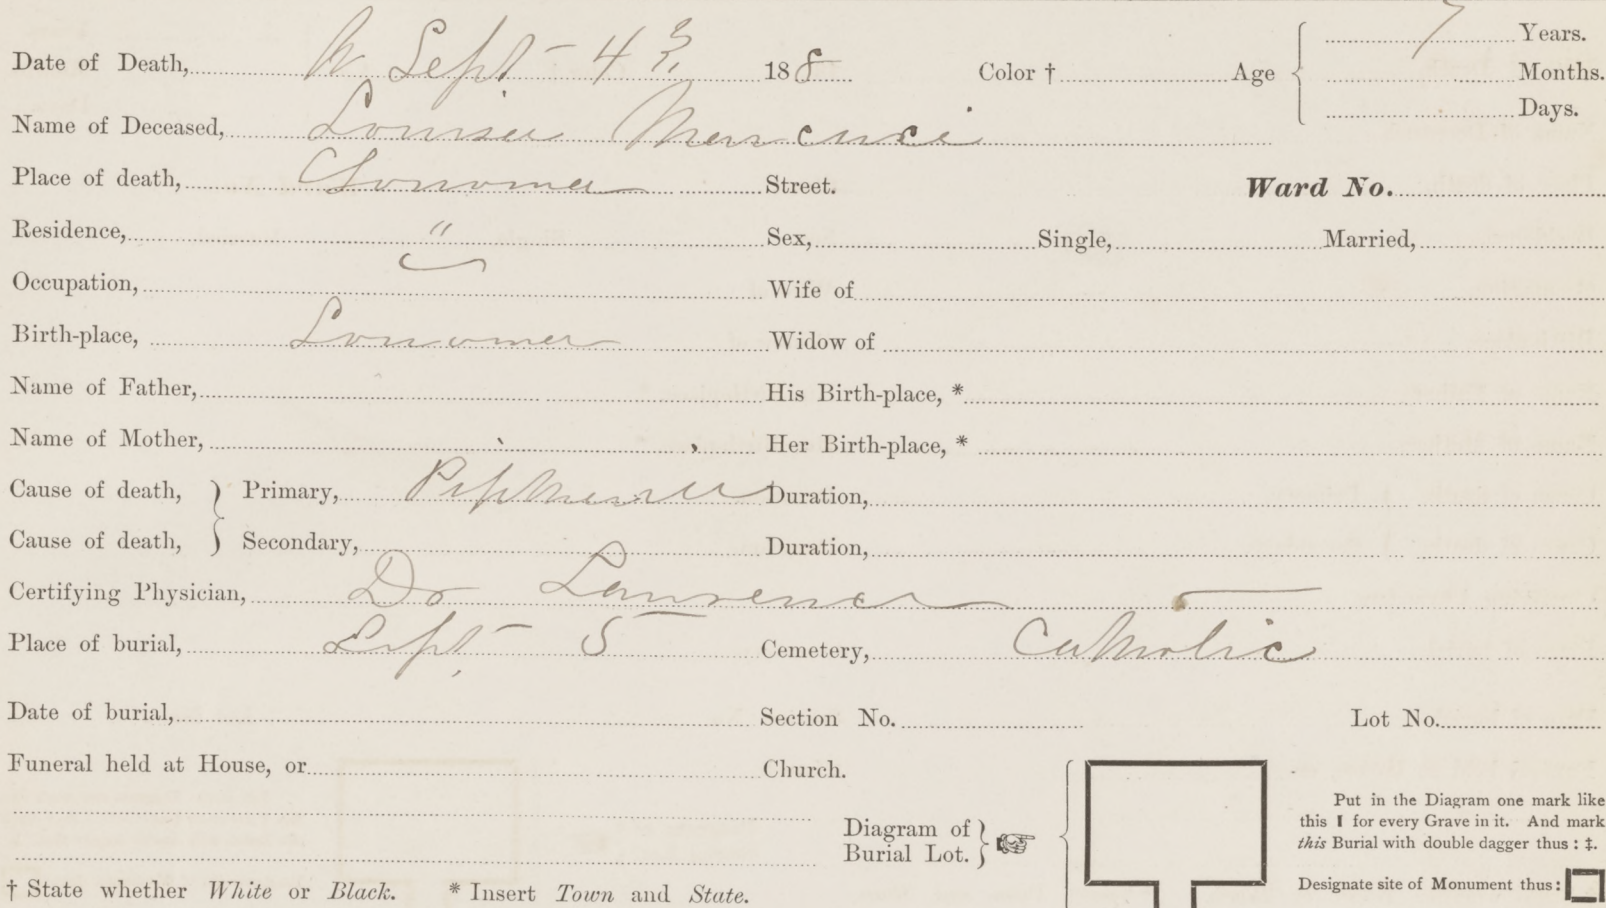 Date of Death, Sept 4 188 Color † Age 7 Years.
Months.
Days.
Name of Deceased, Louisa
Place of death, Sonoma Street. Ward No.
Residence, " Sex, Single, Married,
Occupation, Wife of
Birth-place, Sonoma Widow of
Name of Father, His Birth-place, *
Name of Mother, Her Birth-place, *
Cause of death, } Primary, Duration,
Cause of death, } Secondary, Duration,
Certifying Physician, Dr Lawrence
Place of burial, Sept 5 Cemetery, Catholic
Date of burial, Section No. Lot No.
Funeral held at House, or Church.
Diagram of Burial Lot. }
Put in the Diagram one mark like
this I for every Grave in it. And mark
this Burial with double dagger thus : ‡.
Designate site of Monument thus :
† State whether White or Black. * Insert Town and State.